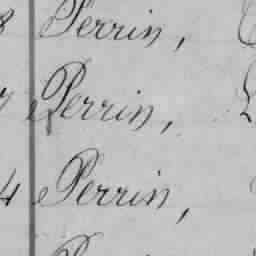 8 Perrin,
Perrin,
4 Perrin,